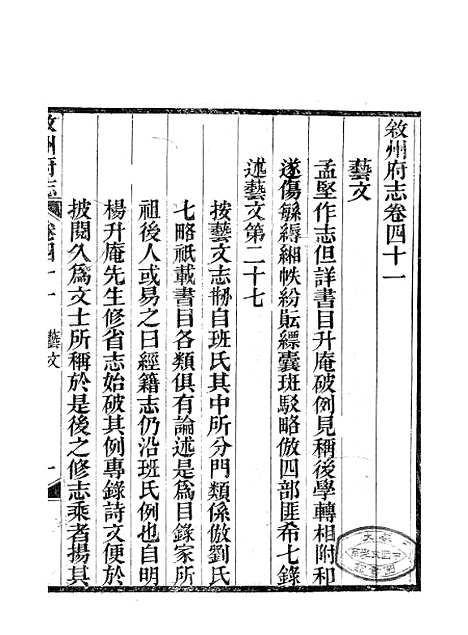 敘州府志卷四十一
藝文
孟堅作志但詳書目升庵破例見稱後學轉相附和
遂傷緐縟緗帙紛耘縹囊班駁略倣四部匪希七錄
述藝文第二十七
按藝文志刱自班氏其中所分門類係倣劉氏
七略祇載書目各類俱有論述是爲目錄家所
祖後人或易之曰經籍志仍沿班氏例也自明
楊升庵先生修省志始破其例專錄詩文便於
披閱久爲文士所稱於是後之修志乘者揚其
敘州府志 卷四十一 藝文 一